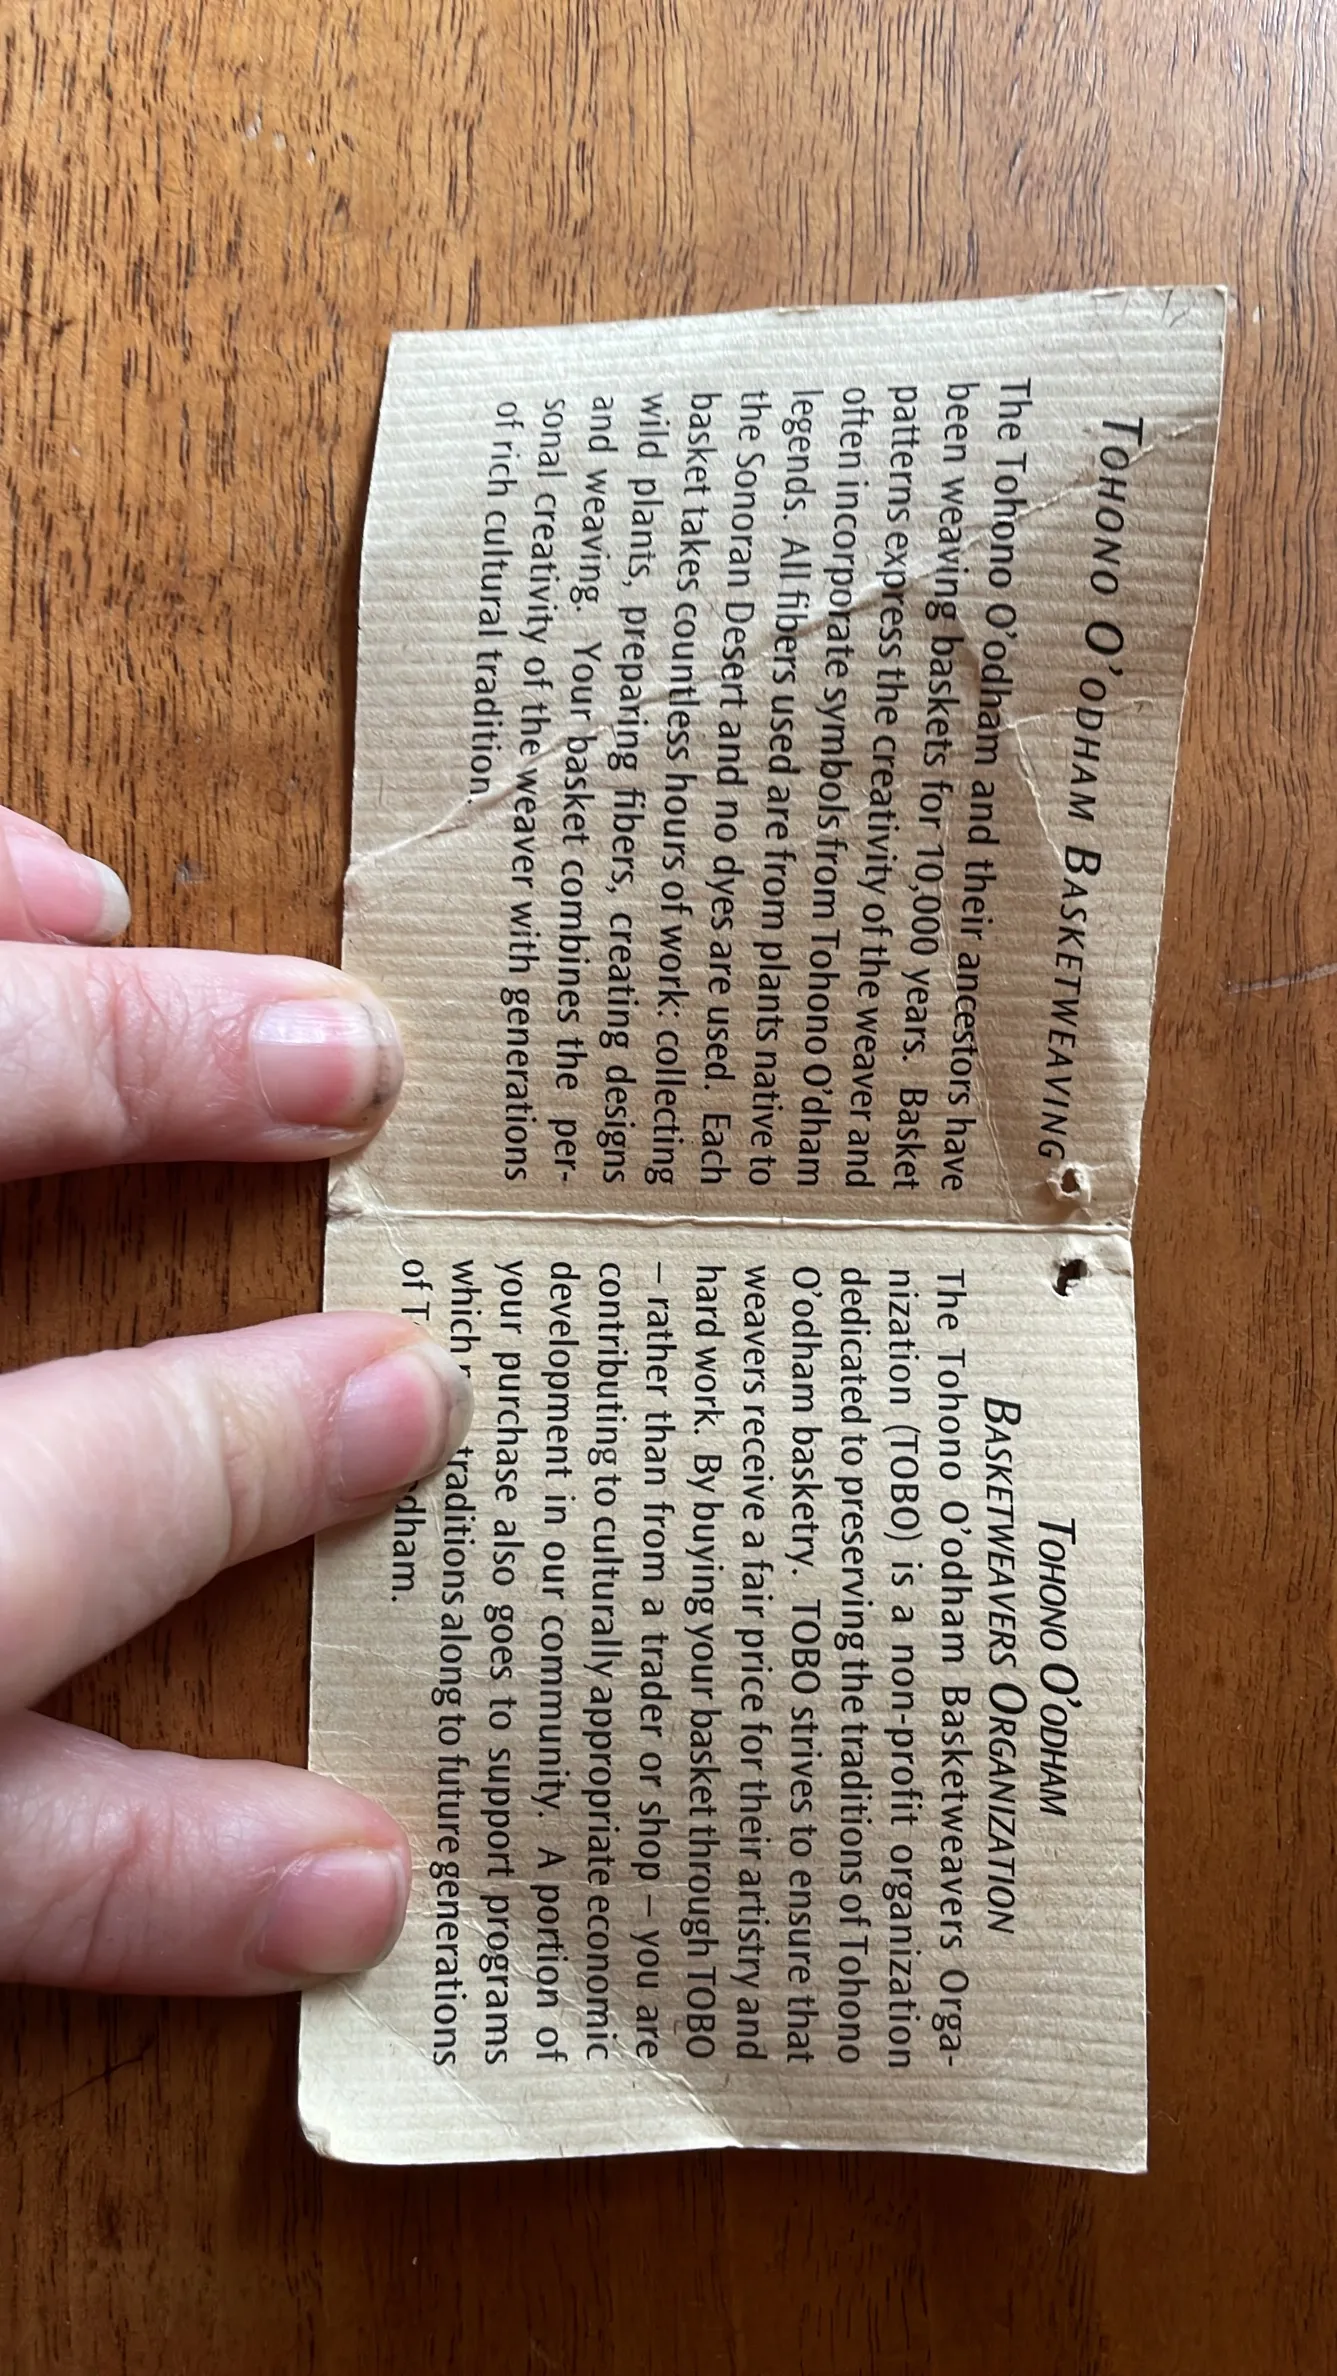 TOHONO O'ODHAM BASKETWEAVING
The Tohono O'odham and their ancestors have
been weaving baskets for 10,000 years. Basket
patterns express the creativity of the weaver and
often incorporate symbols from Tohono O'dham
legends. All fibers used are from plants native to
the Sonoran Desert and no dyes are used. Each
basket takes countless hours of work: collecting
wild plants, preparing fibers, creating designs
and weaving. Your basket combines the per-
sonal creativity of the weaver with generations
of rich cultural tradition.
TOHONO O'ODHAM
BASKETWEAVERS ORGANIZATION
The Tohono O'odham Basketweavers Orga-
nization (TOBO) is a non-profit organization
dedicated to preserving the traditions of Tohono
O'odham basketry. TOBO strives to ensure that
weavers receive a fair price for their artistry and
hard work. By buying your basket through TOBO
– rather than from a trader or shop – you are
contributing to culturally appropriate economic
development in our community. A portion of
your purchase also goes to support programs
which traditions along to future generations
of